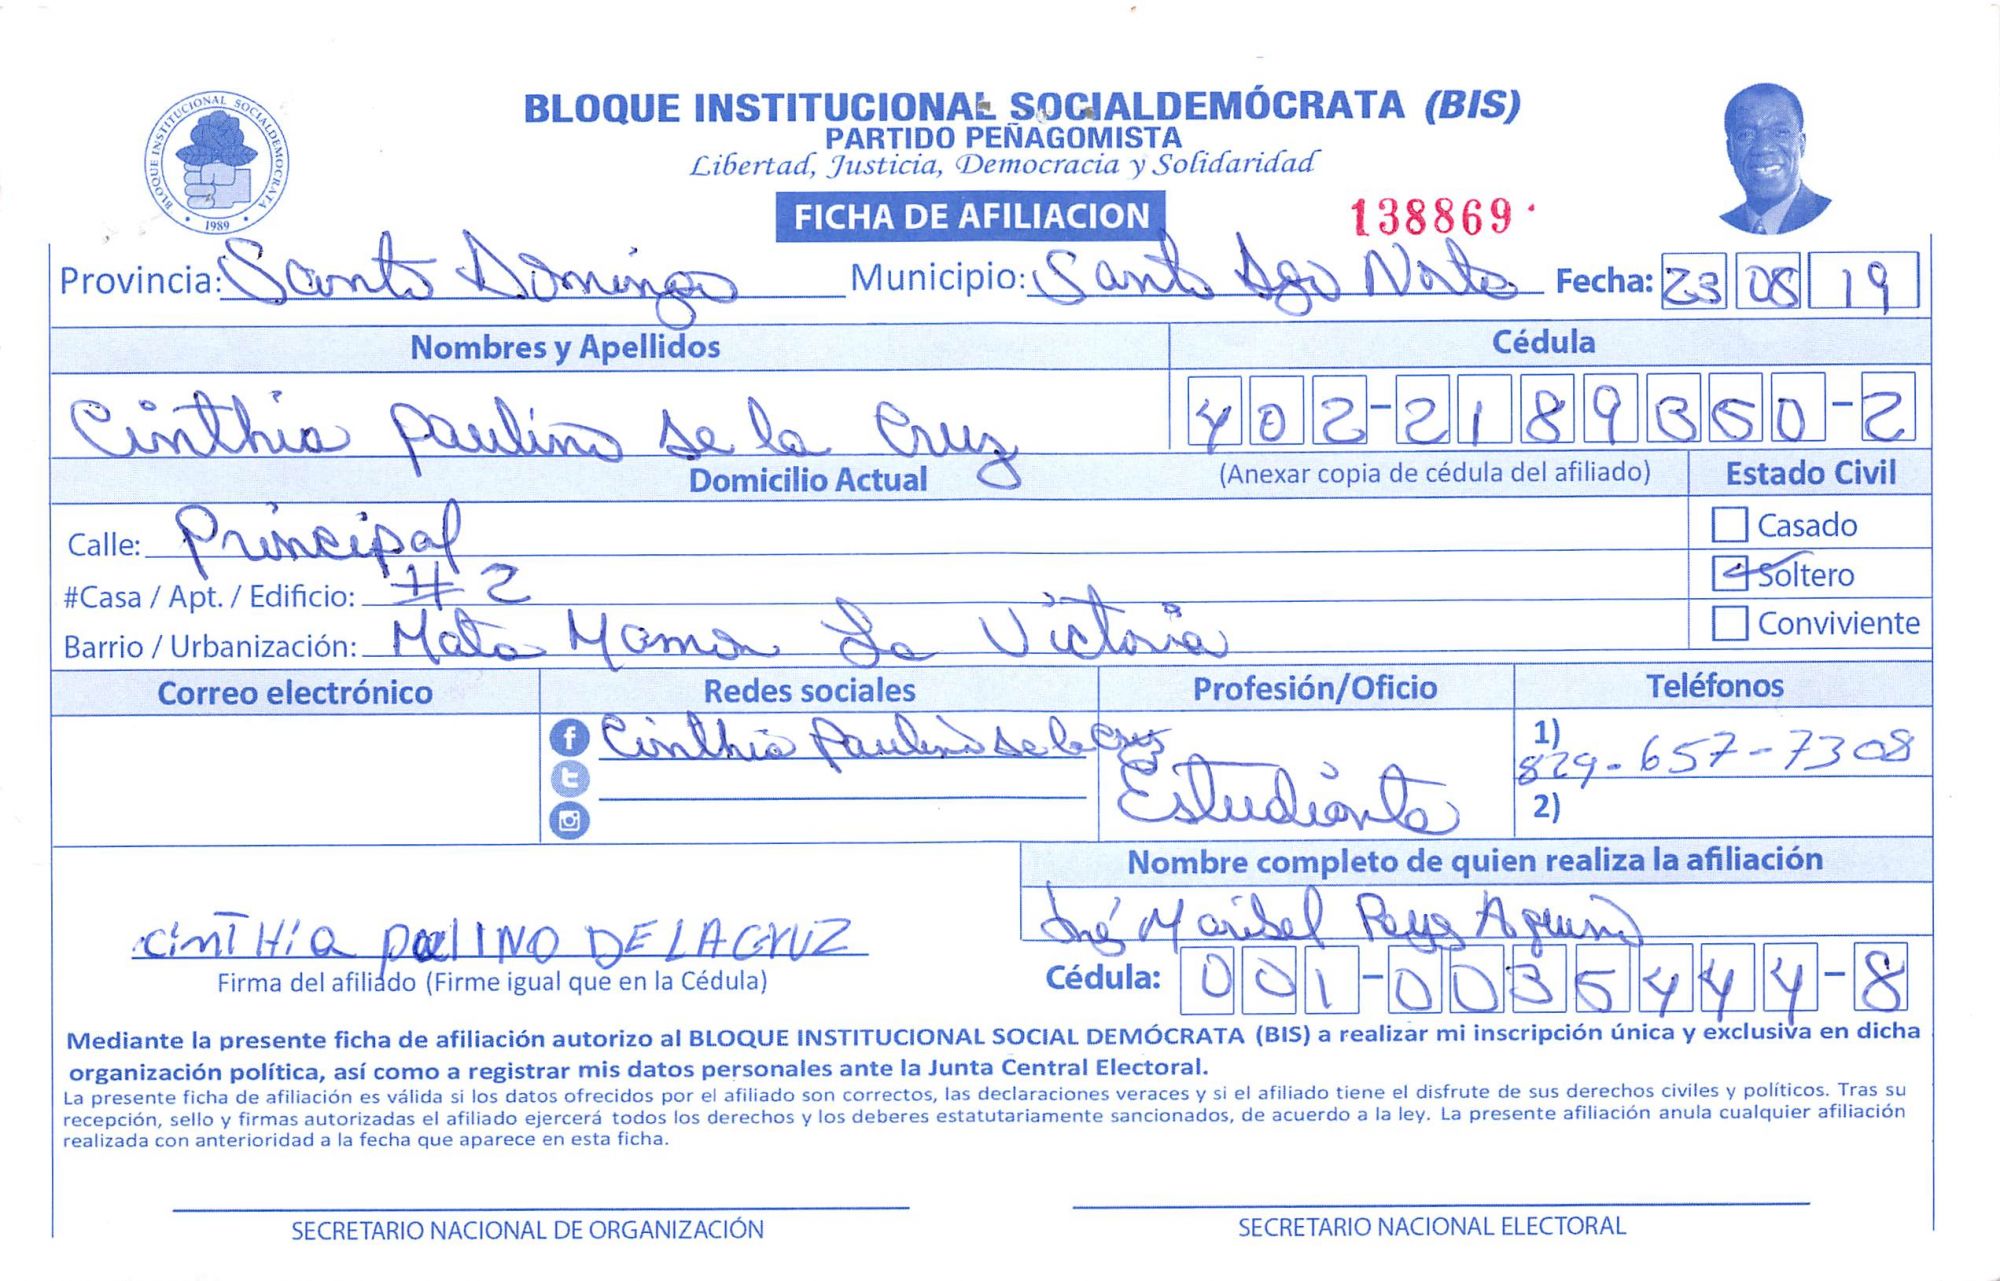 BLOQUE INSTITUCIONAL SOCIALDEMOCRATA
1989
BLOQUE INSTITUCIONAL SOCIALDEMÓCRATA (BIS)
PARTIDO PEÑAGOMISTA
Libertad, Justicia, Democracia y Solidaridad
FICHA DE AFILIACION 138869
Provincia: Santo Domingo Municipio: Santo Dgo Norte Fecha: 23 08 19
Nombres y Apellidos Cédula
Cinthia Paulino de la Cruz 402-2189350-2
Domicilio Actual (Anexar copia de cédula del afiliado) Estado Civil
Calle: Principal Casado
#Casa / Apt. / Edificio: # 2 Soltero
Barrio / Urbanización: Mata Mamon La Victoria Conviviente
Correo electrónico Redes sociales Profesión/Oficio Teléfonos
Cinthia Paulino de la Cruz Estudiante 1) 829-657-7308
2)
Nombre completo de quien realiza la afiliación
Maribel
CINTHIA PAULINO DE LA CRUZ
Firma del afiliado (Firme igual que en la Cédula) Cédula: 001-0035444-8
Mediante la presente ficha de afiliación autorizo al BLOQUE INSTITUCIONAL SOCIAL DEMÓCRATA (BIS) a realizar mi inscripción única y exclusiva en dicha
organización política, así como a registrar mis datos personales ante la Junta Central Electoral.
La presente ficha de afiliación es válida si los datos ofrecidos por el afiliado son correctos, las declaraciones veraces y si el afiliado tiene el disfrute de sus derechos civiles y políticos. Tras su
recepción, sello y firmas autorizadas el afiliado ejercerá todos los derechos y los deberes estatutariamente sancionados, de acuerdo a la ley. La presente afiliación anula cualquier afiliación
realizada con anterioridad a la fecha que aparece en esta ficha.
SECRETARIO NACIONAL DE ORGANIZACIÓN SECRETARIO NACIONAL ELECTORAL